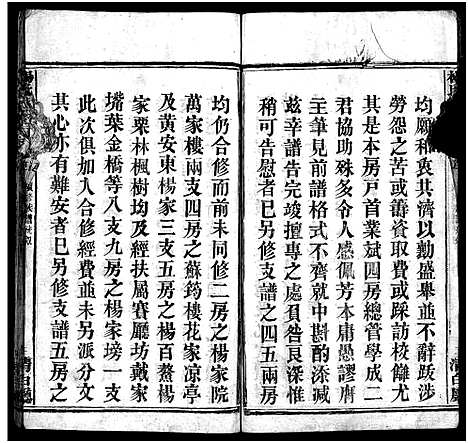 均願和衷共濟以勷盛舉並不辭跋涉
勞怨之苦或籌資取費或踩訪校讎尤
其是以本房戸首業斌四房總管學成二
君協助殊多令人感佩芳本庸愚謬膺
主筆見前譜格式不齊就中斟酌添減
兹幸譜告完竣擅專之處負咎良深所
稍可告慰者已另修支譜之四五兩房
均仍合修而前未同修二房之楊家院
萬家樓兩支四房之蘇筠樓花家凉亭
及黃安東楊家三支五房之楊百鰲楊
家栗林楓樹均及經扶屬賽廳坊戴家
墧葉金橋等八支九房之楊家塝一支
此次俱加入合修經費並未另派分文
其心亦有難安者巳另修支譜五房之
清白廳